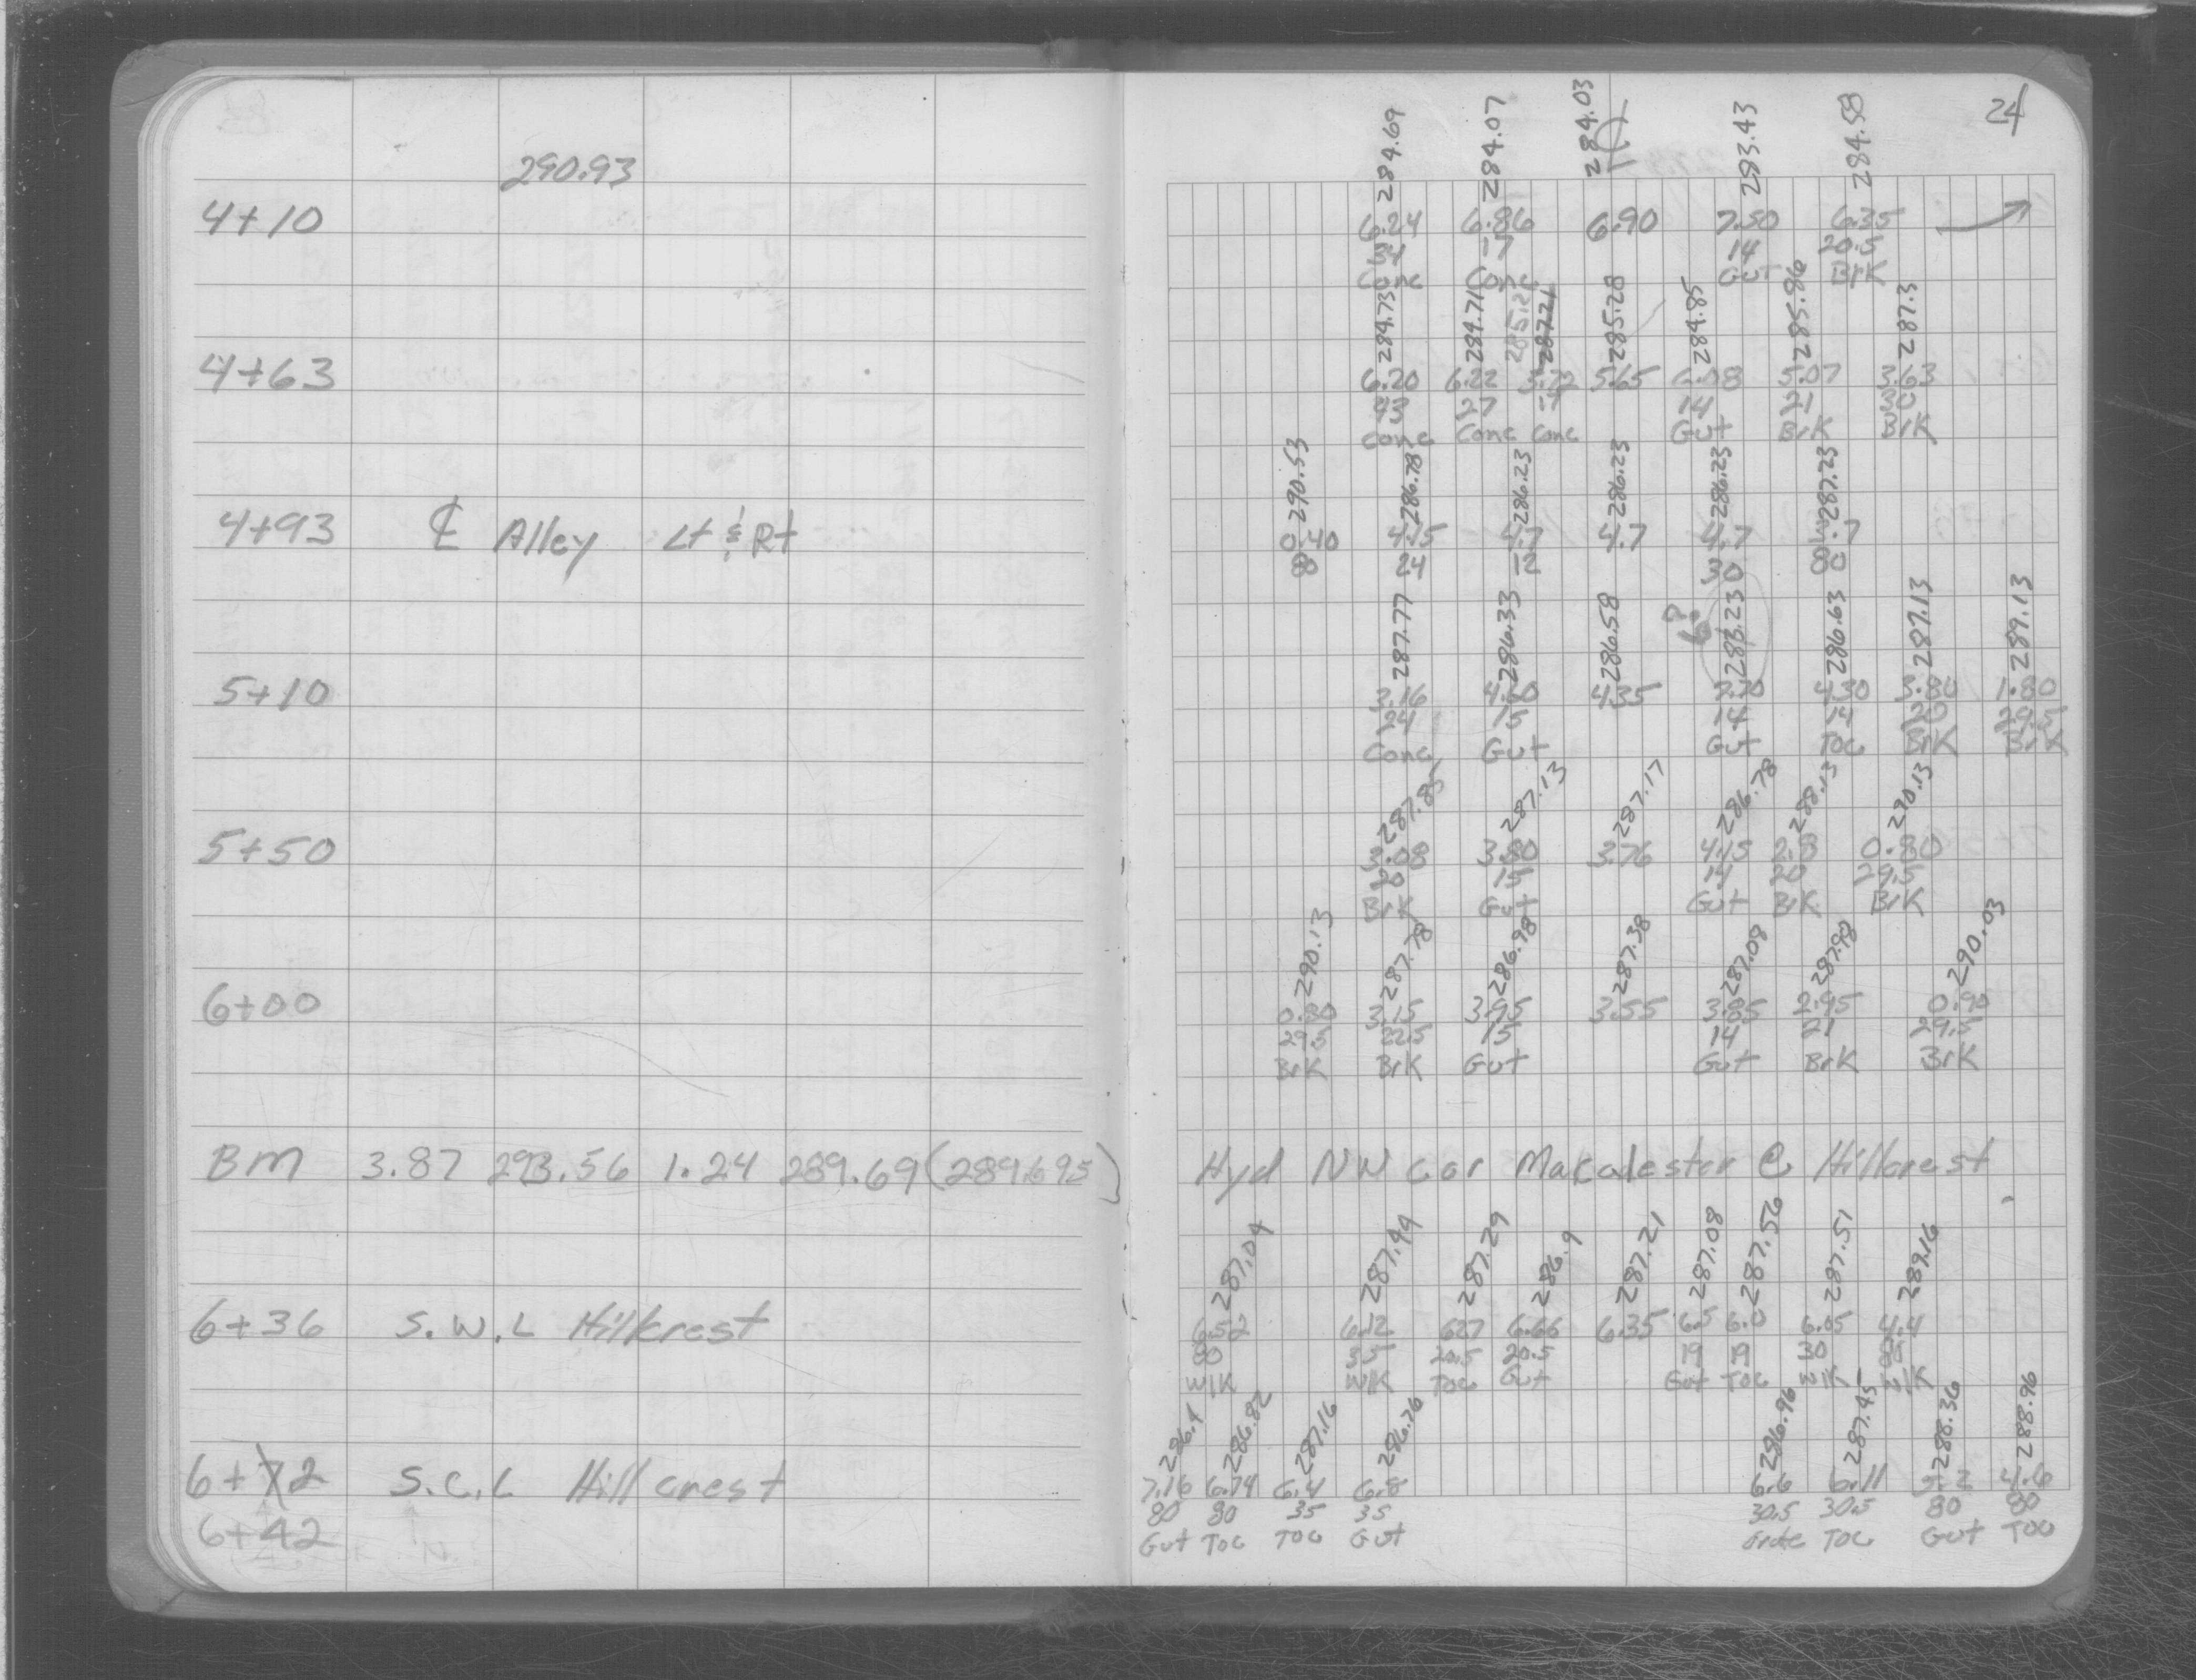 24
284.69 284.07 284.03 ℄ 283.43 284.58
290.93
4+10 6.24 6.86 6.90 7.50 6.35
34 17 14 20.5
Conc Conc Gut BrK
284.73 284.71 285.21 287.21 285.28 284.85 285.86 287.3
4+63 6.20 6.22 5.72 5.65 6.08 5.07 3.63
43 27 14 21 30
Conc Conc Conc Gut BrK BrK
290.53 286.78 286.23 286.23 286.23 287.23
4+93 ℄ Alley Lt & Rt 0.40 4.15 4.7 4.7 4.7 .7
80 24 12 30 80
287.77 286.33 286.58 283.23 286.63 287.13 289.13
5+10 3.16 4.60 4.35 7.70 4.30 3.80 1.80
24 15 14 14 20 29.5
Conc Gut Gut TOC BrK BrK
287.85 287.13 287.17 286.78 288.13 290.13
5+50 3.08 3.80 3.76 4.15 2.8 0.80
20 15 14 20 29.5
BrK Gut Gut BrK BrK
290.13 287.78 286.98 287.38 287.08 287.98 290.03
6+00 0.80 3.15 3.95 3.55 3.85 2.95 0.90
29.5 22.5 15 14 21 29.5
BrK BrK Gut Gut BrK BrK
BM 3.87 293.56 1.24 289.69 (289.695) Hyd NW Cor Macalester @ Hillcrest
287.04 287.44 287.29 286.9 287.21 287.08 287.56 287.51 289.16
6+36 S.W.L Hillcrest 6.52 6.12 6.27 6.66 6.35 6.5 6.0 6.05 4.4
80 35 20.5 20.5 19 19 30
WlK WlK TOC Gut Gut TOC WlK WlK
286.4 286.82 287.16 286.76 286.96 287.45 288.36 288.96
6+72 S.C.L Hillcrest 7.16 6.74 6.4 6.8 6.6 6.11 5.2 4.6
80 80 35 35 30.5 30.5 80 80
6+42 Gut TOC TOC Gut Grate TOC Gut TOC